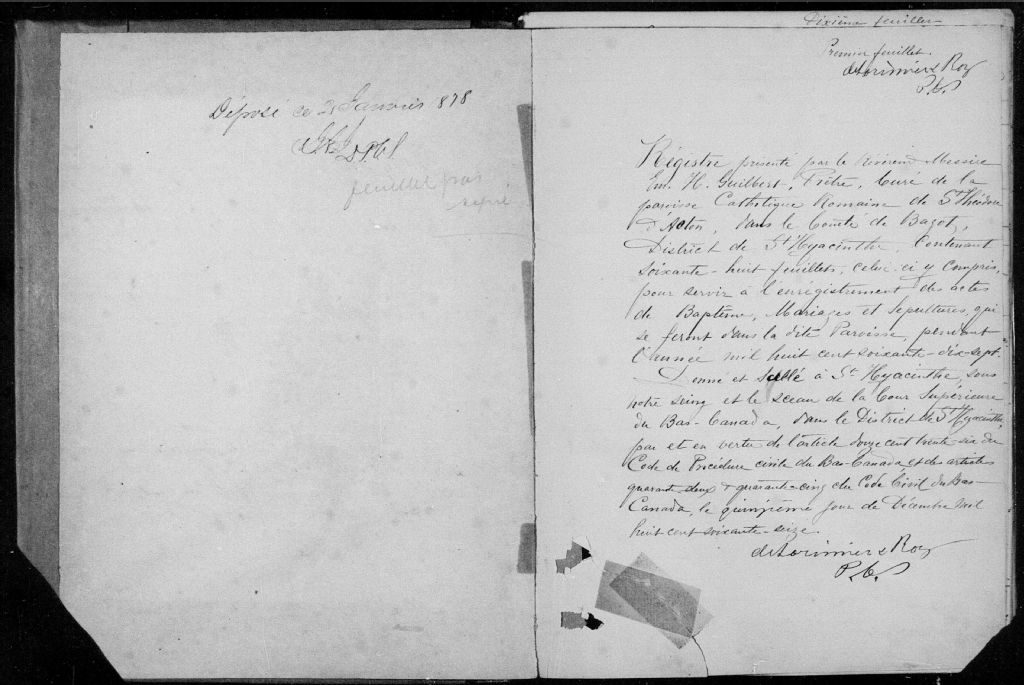 Déposé ce 2 Janvier 1878
feuillet pas
Dixième feuillet
Premier feuillet.
deLorimier & Roy
P.C.S
Régistre présenté par le révérend Messire
Em. H. Guilbert, Prêtre, Curé de la
paroisse Catholique Romaine de St Théodore
d'Acton, dans le Comté de Bagot,
District de St Hyacinthe, Contenant
soixante-huit feuillets, celui-ci y compris,
pour servir à l'enrégistrement des actes
de Baptême, Mariages et Sépultures, qui
se feront dans la dite Paroisse, pendant
l'année mil huit cent soixante-dix-sept.
Donné et scellé à St Hyacinthe, sous
notre seing et le sceau de la Cour Supérieure
du Bas-Canada, dans le District de St Hyacinthe,
par et en vertu de l'article douze cent trente six du
Code de Procédure civile du Bas-Canada et des articles
quarante-deux & quarante-cinq du Code Civil du Bas-
Canada, le quinzième jour de Décembre mil
huit cent soixante-seize.
deLorimier & Roy
P.C.S